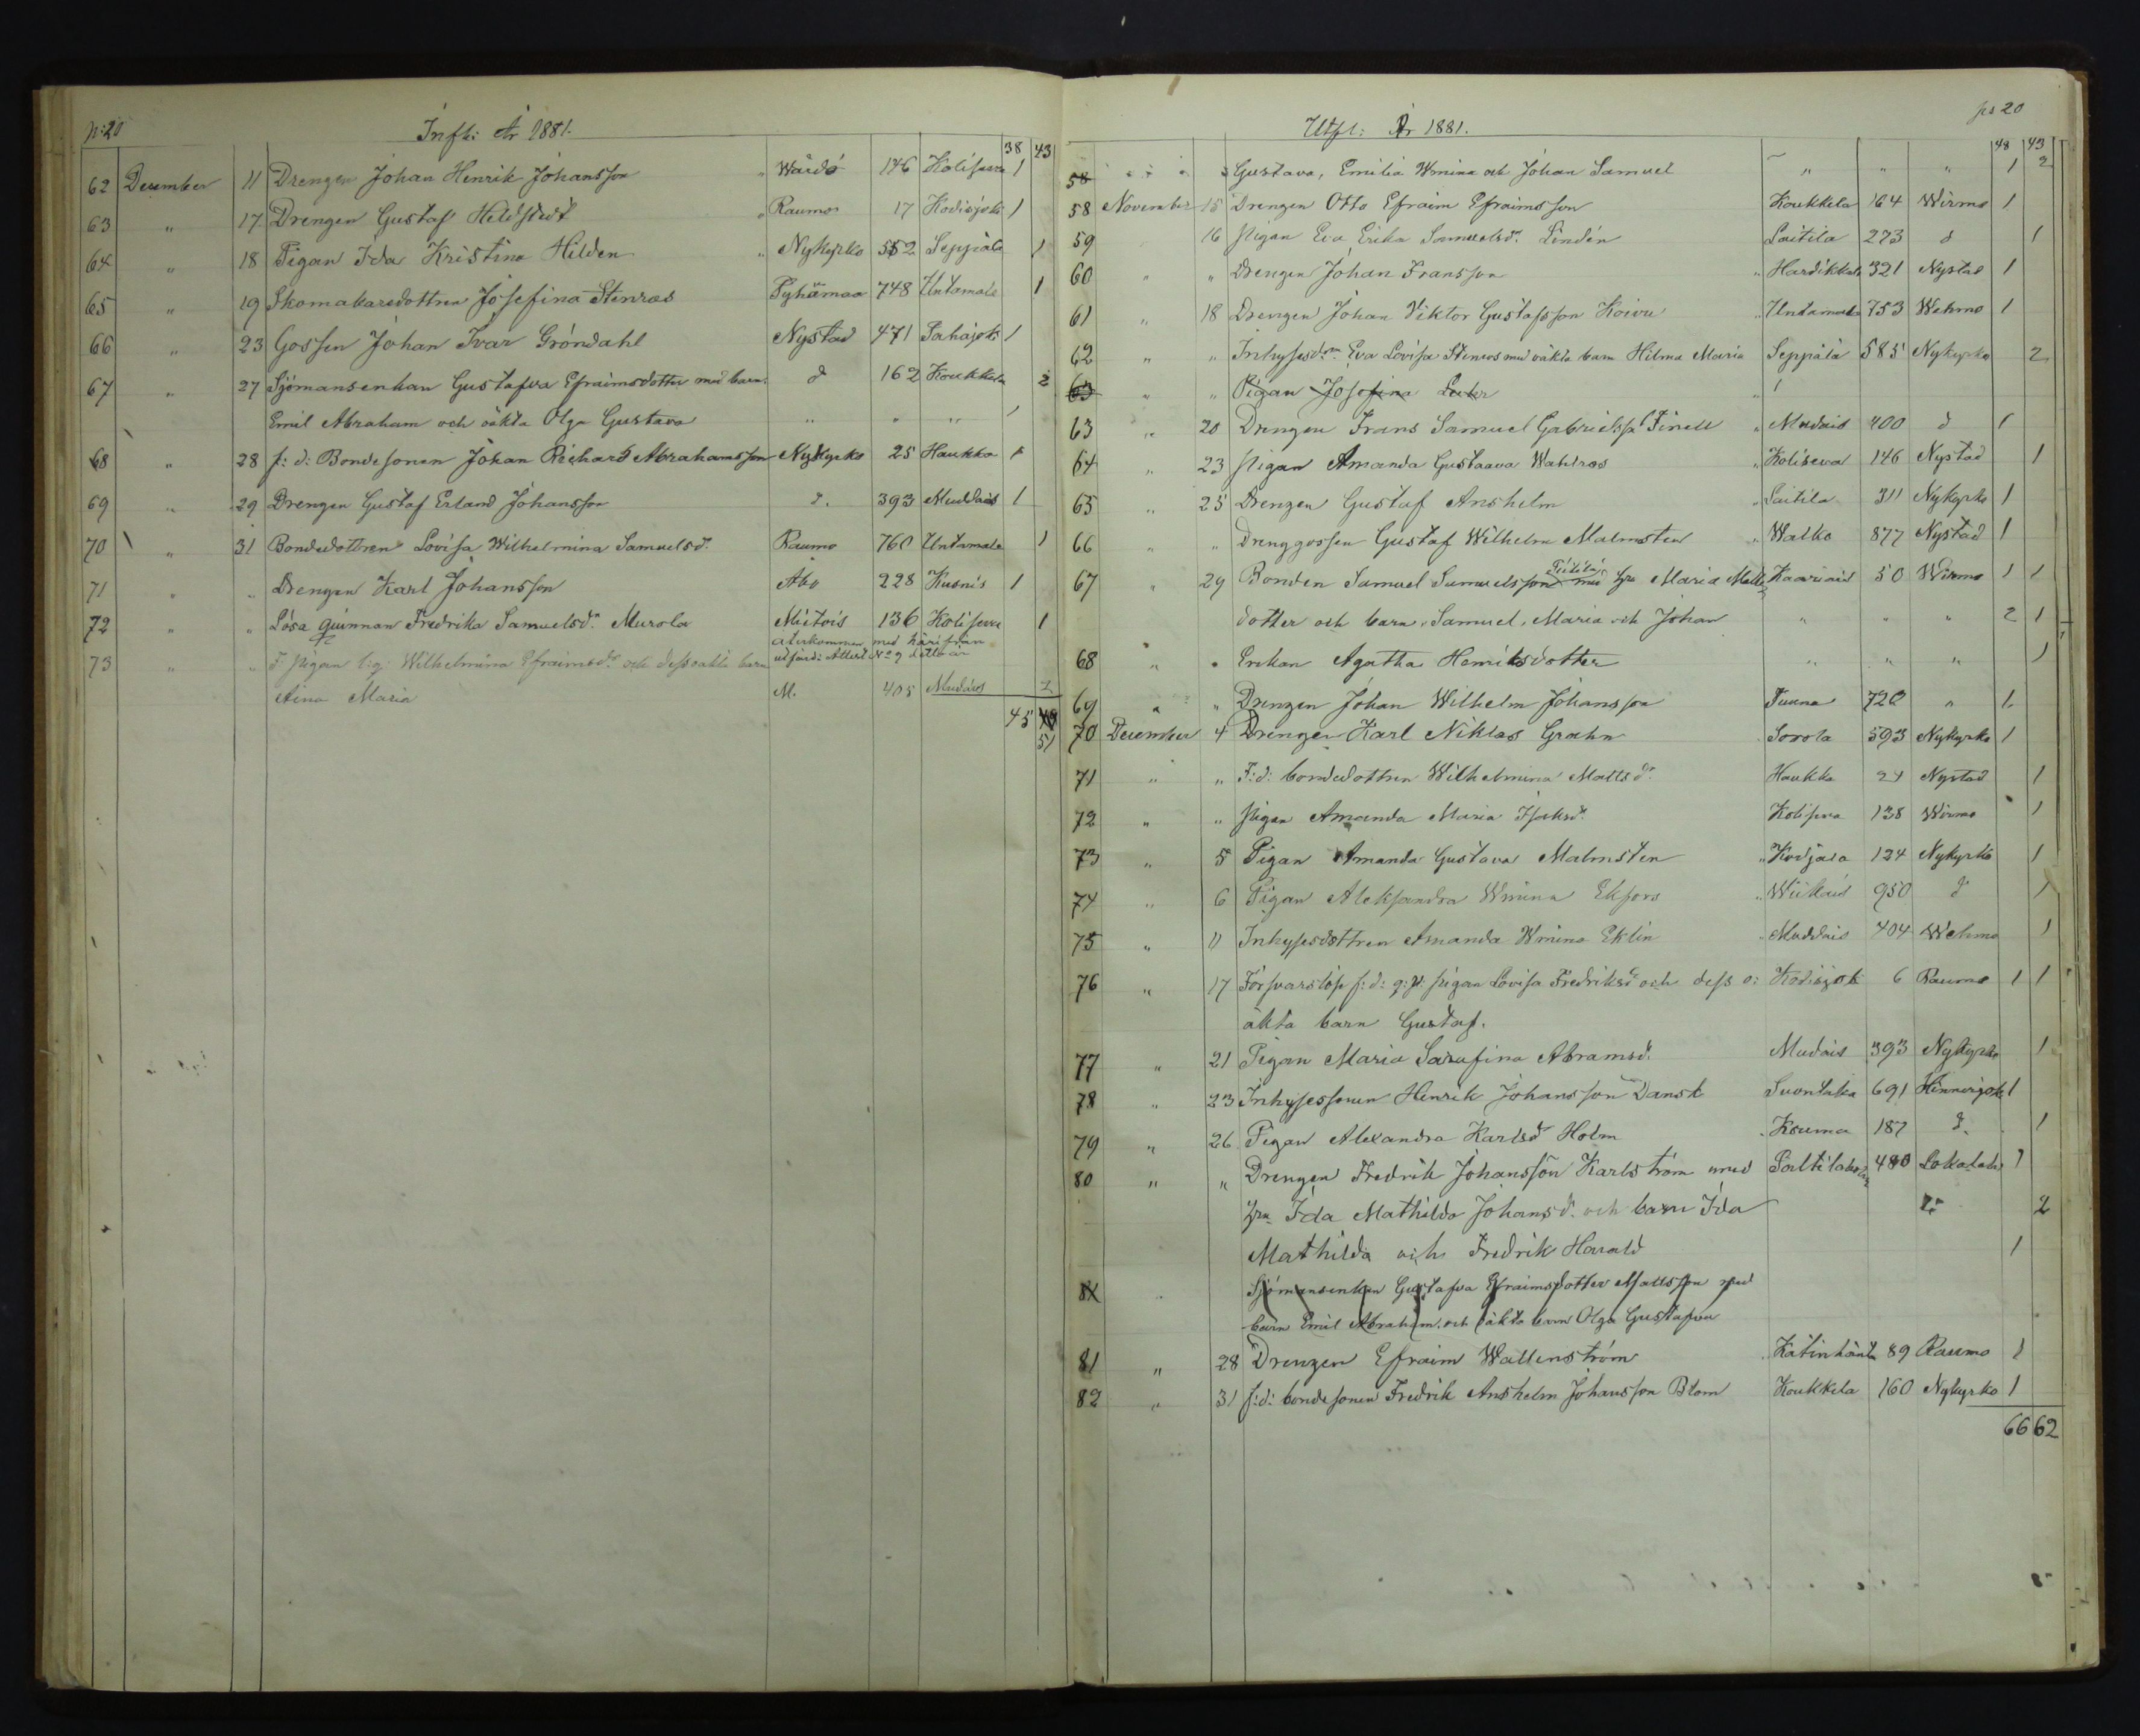 p:20 Infl: År 1881.
38 43
62 December 11 Drengen Johan Henrik Johansson " Wårdö 146 Koliseva 1
63 " 17. Drengen Gustaf Heldstedt " Raumo 17 Kodisjoki 1
64 " 18 Pigan Ida Kristina Hilden " Nykyrko 552 Seppälä 1
65 " 19 Skomakaredottren Josefina Stenros Pyhämaa 748 Untamala 1
66 " 23 Gossen Johan Ivar Gröndahl Nystad 471 Pahajoki 1
67 " 27 Sjömansenkan Gustafva Efraimsdotter med barn: d 162 Koukkela 2
Emil Abraham och oäkta Olga Gustava " " " 1
68 " 28 f: d: Bondesonen Johan Richard Abrahamsson Nykyrko 25 Haukka 1
69 " 29 Drengen Gustaf Erland Johansson d. 393 Mudais 1
70 " 31 Bondedottren Lovisa Wilhelmina Samuelsd. Raumo 760 Untamala 1
71 " " Drengen Karl Johansson Åbo 228 Kusnis 1
72 " " Lösa quinnan Fredrika Samuelsdr. Murola Mietois 136 Koliseva 1
återkommen med härifrån
73 " " F. pigan b:q: Wilhelmina Efraimsdr. och dess oäkta barn utfärd: Attest No 9 detta år
Aina Maria M. 405 Mudais 2
45 49
51
Utfl: År 1881. ps 20
48 43
58 " " " Gustava, Emilia Wmina och Johan Samuel " " " 1 2
58 November 15 Drengen Otto Efraim Efraimsson Koukkela 164 Wirmo 1
59 16 pigan Eva Erika Samuelsdr. Lindén Laitila 273 d 1
60 " " Drengen Johan Fransson " Hardikkala 321 Nystad 1
61 " 18 Drengen Johan Viktor Gustafsson Koivu " Untamala 753 Wehmo 1
62 " " Inhysesdrn Eva Lovisa Stenros med oäkta barn Hilma Maria Seppälä 585 Nykyrko 2
63 " " Pigan Josefina
63 " 20 Drengen Frans Samuel Gabrielsson Finell " Mudais 400 d 1
64 " 23 pigan Amanda Gustaava Wahlros " Koliseva 146 Nystad 1
65 " 25 Drengen Gustaf Anshelm " Laitila 311 Nykyrko 1
66 " " Drenggossen Gustaf Wilhelm Malmsten " Walko 877 Nystad 1
67 " 29 Bonden Samuel Samuelsson med hu Maria Matts Kaariais 50 Wirmo 1 1
dotter och barn: Samuel, Maria och Johan " " " 2 1
68 " " Enkan Agatha Henriksdotter " " " 1
69 " " Drengen Johan Wilhelm Johansson Tuuna 720 " 1
70 December 4 Drengen Karl Niklas Grahn Sovola 593 Nykyrko 1
71 " " F: d: bondedottren Wilhelmina Mattsdr. Haukka 24 Nystad 1
72 " " pigan Amanda Maria Isaksdr. Kolisева 138 Wirmo 1
73 " 5 Pigan Amanda Gustava Malmsten " Kodjala 124 Nykyrko 1
74 " 6 Pigan Aleksandra Wmina Ekfors " Wiikais 950 d 1
75 " 11 Inhysesdottren Amanda Wmina Eklin Muddais 404 Wehmo 1
76 " 17 Försvarslösa f: d: q: p: pigan Lovisa Fredriksdr och dess o: Kodisjoki 6 Raumo 1 1
äkta barn Gustaf.
77 " 21 Pigan Maria Sarafina Abramsdr. Mudais 393 Nykyrko 1
78 " 23 Inhysessonen Henrik Johansson Dansk Suontaka 691 Hinnerjoki 1
79 " 26 Pigan Alexandra Karlsdr Holm Kouma 187 d. 1
80 " " Drengen Fredrik Johansson Karlström med 480 Lokalaks 1
hu Ida Mathilda Johansdr. och barn Ida d: 2
Mathilda och Fredrik Harald 1
81 " Sjömansenkan Gustafva Efraimsdotter Mattsson med
barn Emil Abraham och oäkta barn Olga Gustafva
81 " 28 Drengen Efraim Wallenström Katinhäntä 89 Raumo 1
82 " 31 f: d: bondesonen Fredrik Anshelm Johansson Blom Koukkela 160 Nykyrko 1
66 62